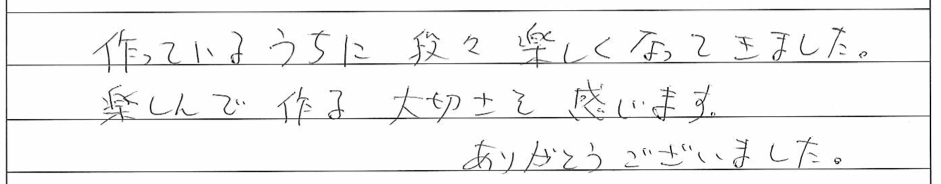 作っているうちに段々楽しくなってきました。
楽しんで作る大切さを感じます。
ありがとうございました。